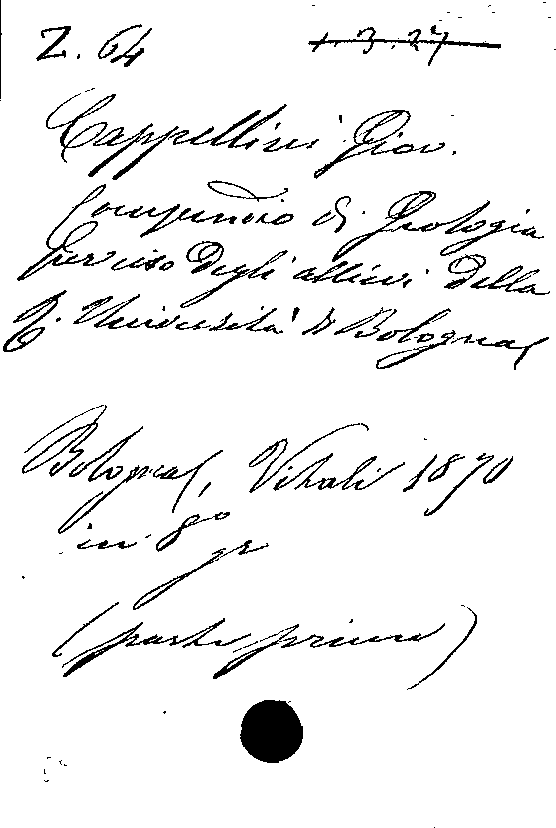 Z. 64 1. 3. 27
Cappellini Giov.
Compendio di Geologia
per uso degli allievi della
R. Università di Bologna
Bologna, Vitali 1870
in 8º gr
(parte prima)